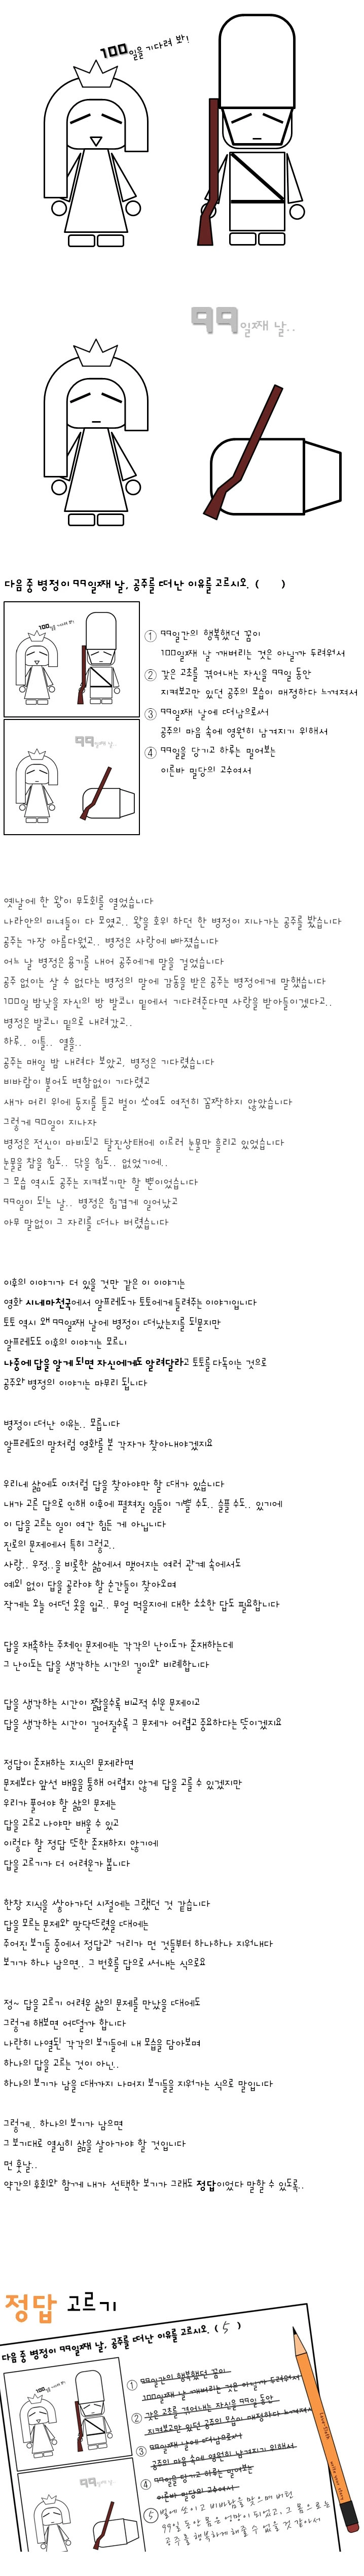 100일을 기다려 봐!
99일째 날..
다음 중 병정이 99일째 날, 공주를 떠난 이유를 고르시오. (      )
100일을 기다려 봐!
99일째 날..
① 99일간의 행복했던 꿈이
100일째 날 깨버리는 것은 아닐까 두려워서
② 갖은 고초를 겪어내는 자신을 99일 동안
지켜보고만 있던 공주의 모습이 매정하다 느껴져서
③ 99일째 날에 떠남으로써
공주의 마음 속에 영원히 남겨지기 위해서
④ 99일을 당기고 하루는 밀어보는
이른바 밀당의 고수여서
옛날에 한 왕이 무도회를 열었습니다
나라안의 미녀들이 다 모였고.. 왕을 호위 하던 한 병정이 지나가는 공주를 봤습니다
공주는 가장 아름다웠고.. 병정은 사랑에 빠졌습니다
어느 날 병정은 용기를 내어 공주에게 말을 걸었습니다
공주 없이는 살 수 없다는 병정의 말에 감동을 받은 공주는 병정에게 말했습니다
100일 밤낮을 자신의 방 발코니 밑에서 기다려준다면 사랑을 받아들이겠다고..
병정은 발코니 밑으로 내려갔고..
하루.. 이틀.. 열흘..
공주는 매일 밤 내려다 보았고, 병정은 기다렸습니다
비바람이 불어도 변함없이 기다렸고
새가 머리 위에 둥지를 틀고 벌이 쏘여도 여전히 꼼짝하지 않았습니다
그렇게 90일이 지나자
병정은 전신이 마비되고 탈진상태에 이르러 눈물만 흘리고 있었습니다
눈물을 참을 힘도.. 닦을 힘도.. 없었기에..
그 모습 역시도 공주는 지켜보기만 할 뿐이었습니다
99일이 되는 날.. 병정은 힘겹게 일어났고
아무 말없이 그 자리를 떠나 버렸습니다
이후의 이야기가 더 있을 것만 같은 이 이야기는
영화 시네마천국에서 알프레도가 토토에게 들려주는 이야기입니다
토토 역시 왜 99일째 날에 병정이 떠났는지를 되묻지만
알프레도도 이후의 이야기는 모르니
나중에 답을 알게 되면 자신에게도 알려달라고 토토를 다독이는 것으로
공주와 병정의 이야기는 마무리 됩니다
병정이 떠난 이유는.. 모릅니다
알프레도의 말처럼 영화를 본 각자가 찾아내야겠지요
우리네 삶에도 이처럼 답을 찾아야만 할 때가 있습니다
내가 고른 답으로 인해 이후에 펼쳐질 일들이 기쁠 수도.. 슬플 수도.. 있기에
이 답을 고르는 일이 여간 힘든 게 아닙니다
진로의 문제에서 특히 그렇고..
사랑.. 우정..을 비롯한 삶에서 맺어지는 여러 관계 속에서도
예외 없이 답을 골라야 할 순간들이 찾아오며
작게는 오늘 어떤 옷을 입고.. 무얼 먹을지에 대한 소소한 답도 필요합니다
답을 재촉하는 주체인 문제에는 각각의 난이도가 존재하는데
그 난이도는 답을 생각하는 시간의 길이와 비례합니다
답을 생각하는 시간이 짧을수록 비교적 쉬운 문제이고
답을 생각하는 시간이 길어질수록 그 문제가 어렵고 중요하다는 뜻이겠지요
정답이 존재하는 지식의 문제라면
문제보다 앞선 배움을 통해 어렵지 않게 답을 고를 수 있겠지만
우리가 풀어야 할 삶의 문제는
답을 고르고 나야만 배울 수 있고
이렇다 할 정답 또한 존재하지 않기에
답을 고르기가 더 어려운가 봅니다
한창 지식을 쌓아가던 시절에는 그랬던 것 같습니다
답을 모르는 문제와 맞닥뜨렸을 때에는
주어진 보기들 중에서 정답과 거리가 먼 것들부터 하나하나 지워내다
보기가 하나 남으면.. 그 번호를 답으로 써내는 식으로요
정~ 답을 고르기 어려운 삶의 문제를 만났을 때에도
그렇게 해보면 어떨까 합니다
나란히 나열된 각각의 보기들에 내 모습을 담아보며
하나의 답을 고르는 것이 아닌..
하나의 보기가 남을 때까지 나머지 보기들을 지워가는 식으로 말입니다
그렇게.. 하나의 보기가 남으면
그 보기대로 열심히 삶을 살아가야 할 것입니다
먼 훗날..
약간의 후회와 함께 내가 선택한 보기가 그래도 정답이었다 말할 수 있도록..
정답 고르기
다음 중 병정이 99일째 날, 공주를 떠난 이유를 고르시오. ( 5 )
100일을 기다려 봐!
99일째 날..
① 99일간의 행복했던 꿈이
100일째 날 깨버리는 것은 아닐까 두려워서
② 갖은 고초를 겪어내는 자신을 99일 동안
지켜보고만 있던 공주의 모습이 매정하다 느껴져서
③ 99일째 날에 떠남으로써
공주의 마음 속에 영원히 남겨지기 위해서
④ 99일을 당기고 하루는 밀어보는
이른바 밀당의 고수여서
⑤ 벌에 쏘이고 비바람을 맞으며 버틴
99일 동안 몸은 엉망이 되었고, 그 몸으로는
공주를 행복하게 해줄 수 없을 것 같아서